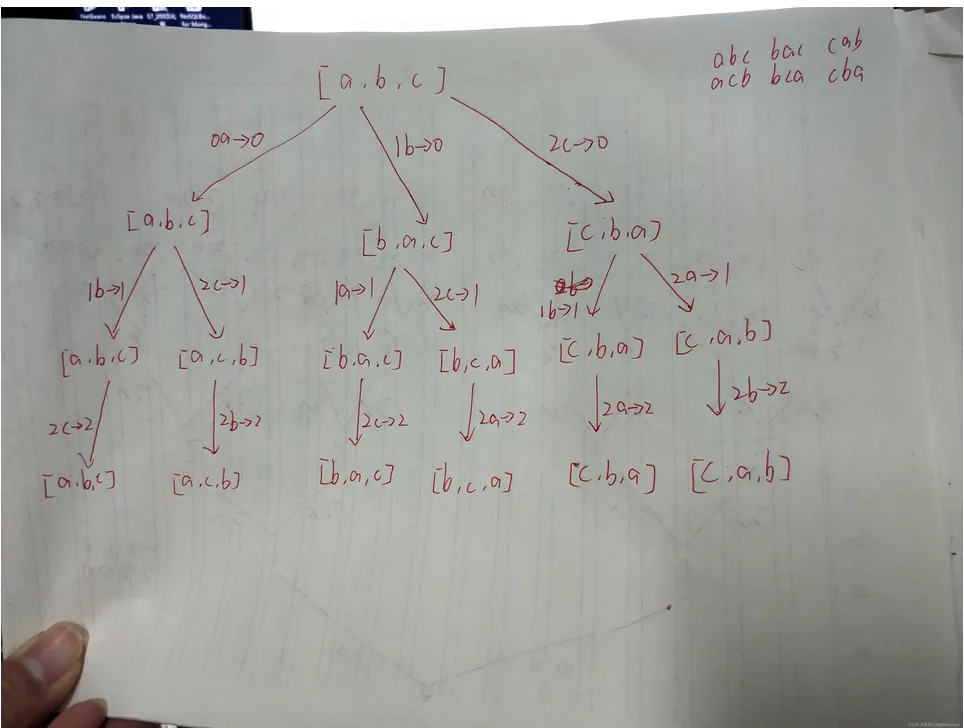 NetBeans Eclipse Java
abc bac cab
acb bca cba
[a,b,c]
0a→0 1b→0 2c→0
[a,b,c] [b,a,c] [c,b,a]
1b→1 2c→1 1a→1 2c→1 1b→1 2a→1
[a,b,c] [a,c,b] [b,a,c] [b,c,a] [c,b,a] [c,a,b]
2c→2 2b→2 2c→2 2a→2 2a→2 2b→2
[a,b,c] [a,c,b] [b,a,c] [b,c,a] [c,b,a] [c,a,b]